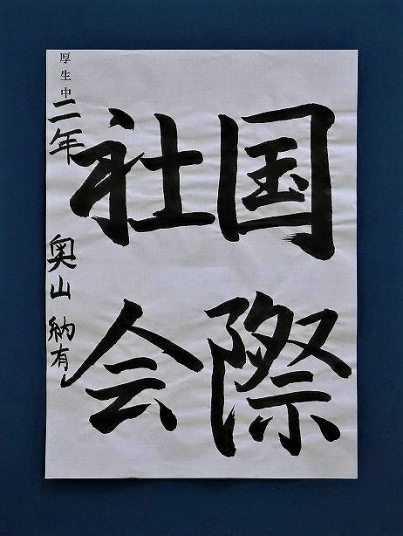 国際
社会
厚生中
二年 奥山 納有